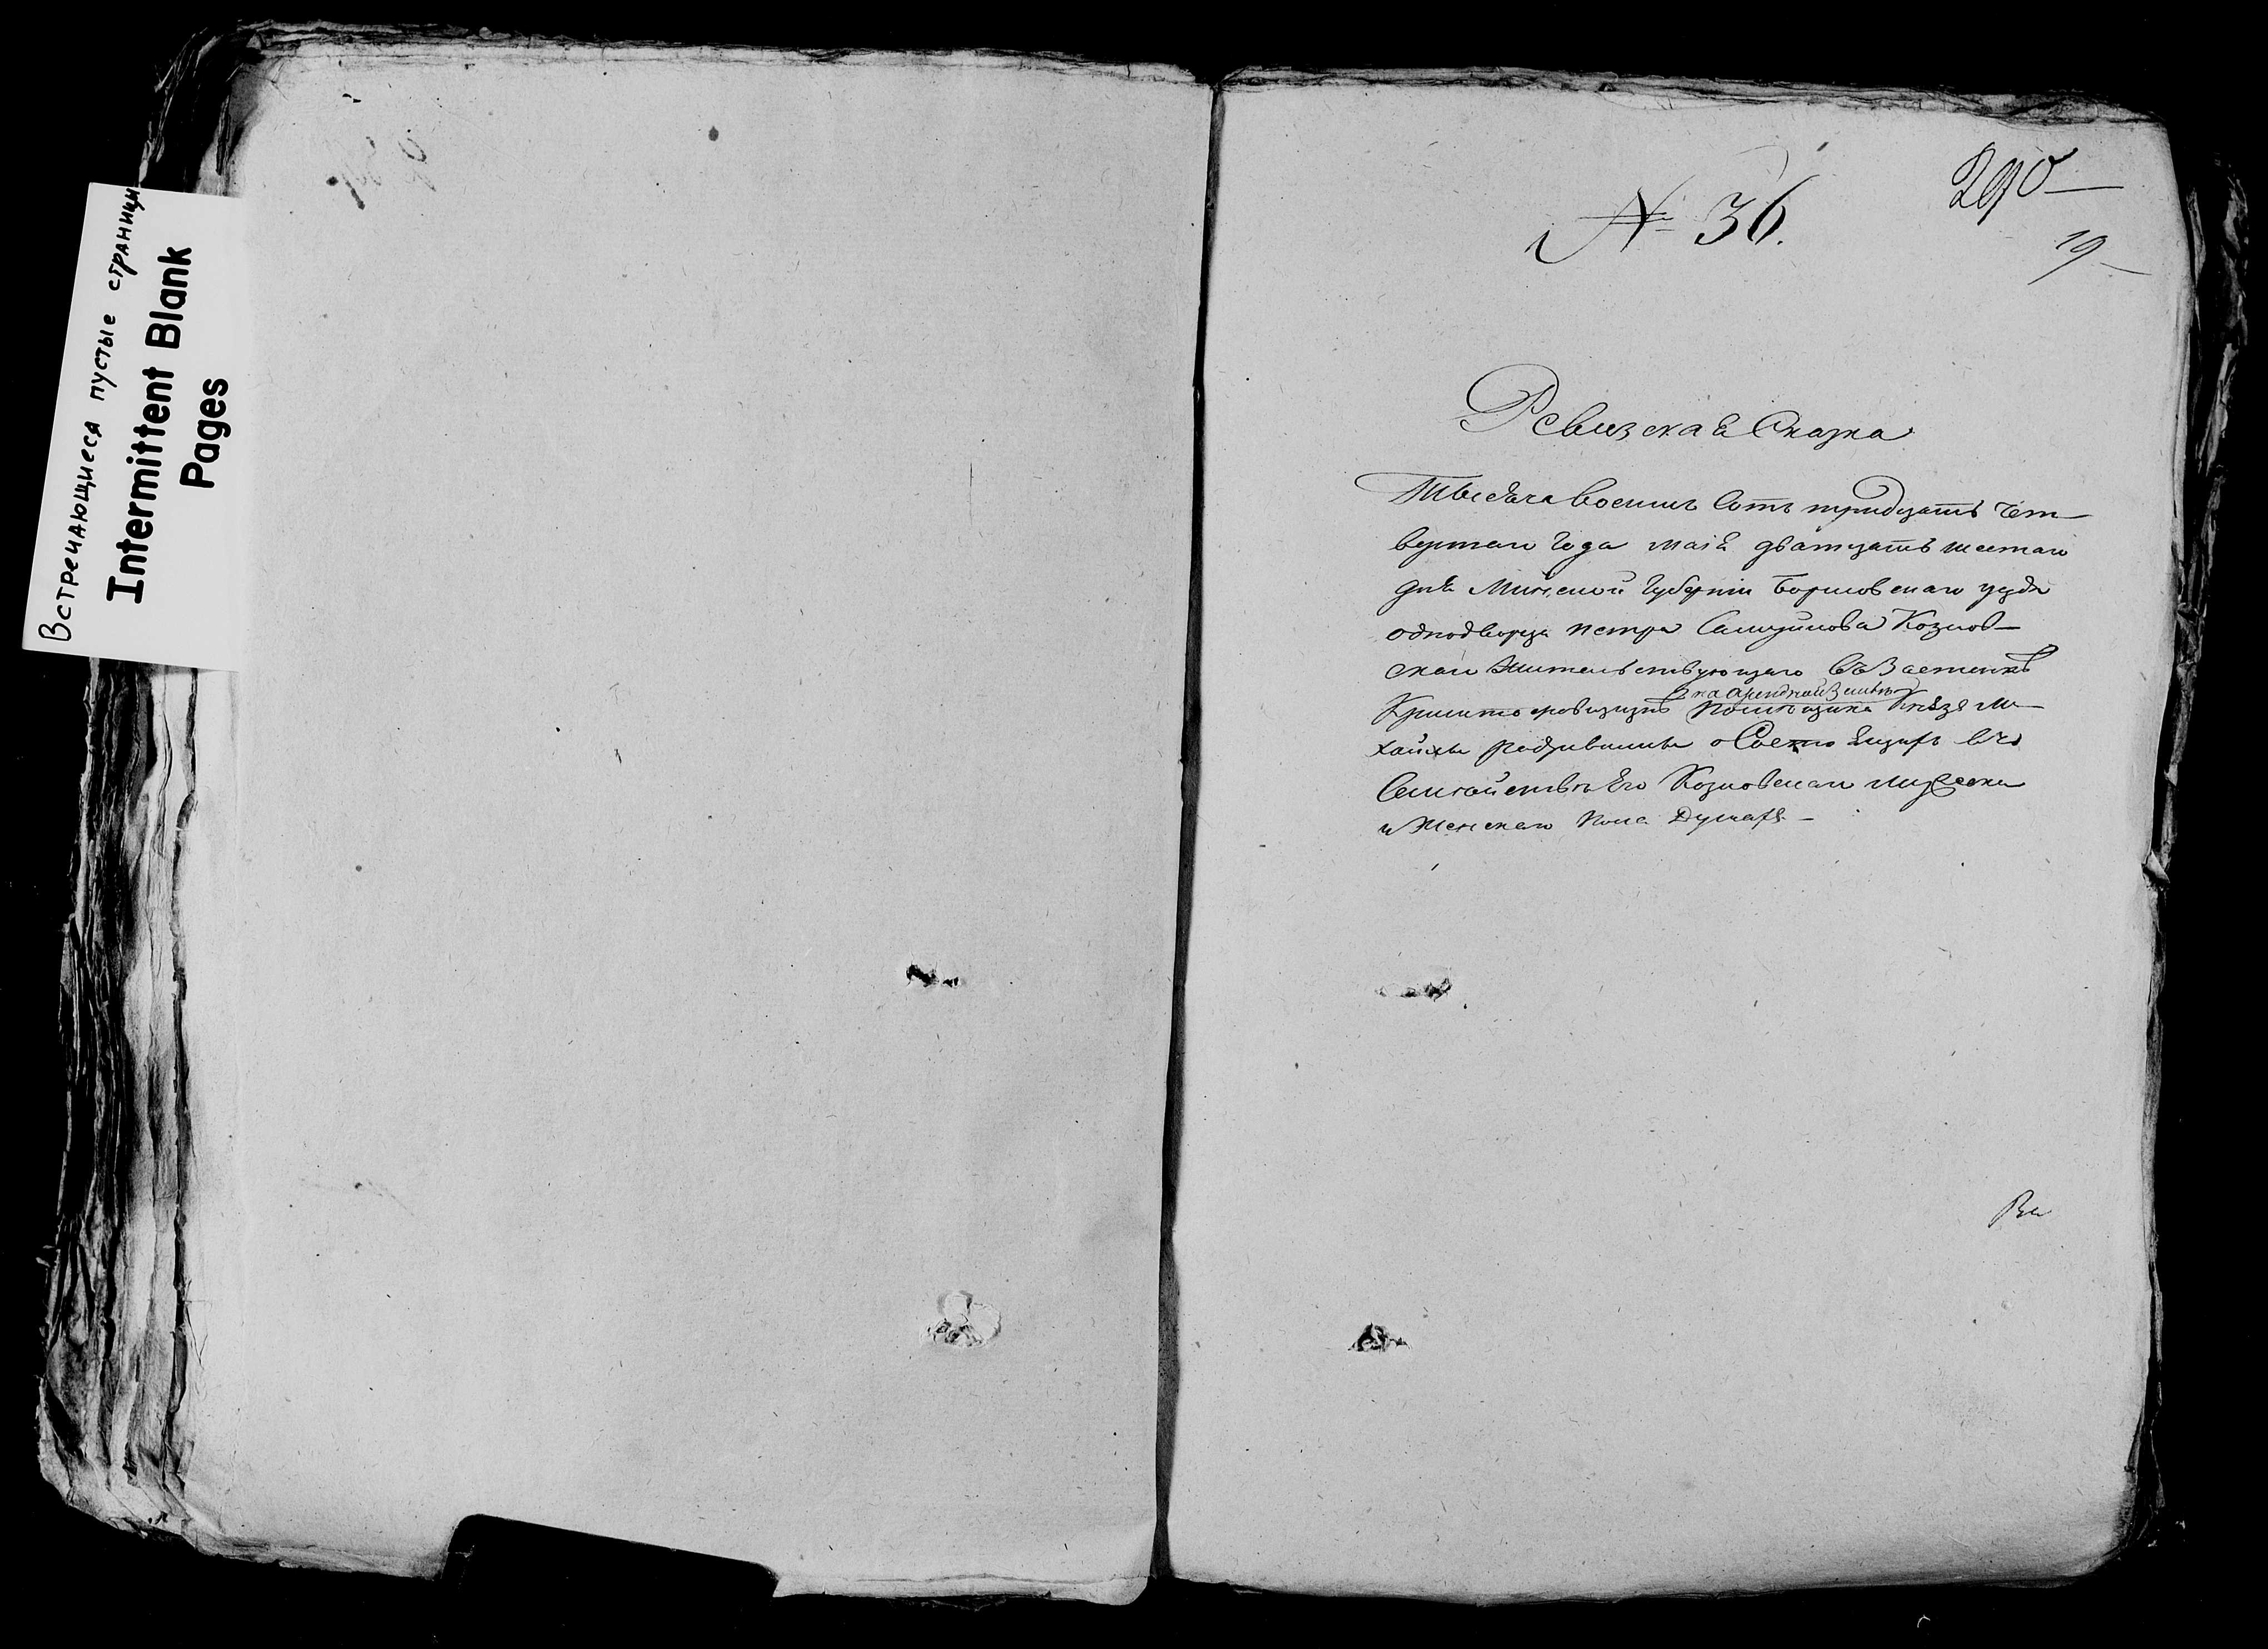 Встречающиеся пустые страницы
Intermittent Blank
Pages
290
19
№ 36.
Ревизская Сказка
Тысяча восемь Сотъ тридцать Чет-
вертаго Года маія дватцать шестаго
дня Минской Губерніи Борисовскаго уезда
однодворца петра Козлов-
скаго Жительствующаго въ Застенкѣ
на Арендной Землѣ
помѣщика Князя Ми-
хайлы радзивилла о Состоящихъ въ
Семействѣ Его Козловскаго мужеска
и Женскаго пола Душахъ